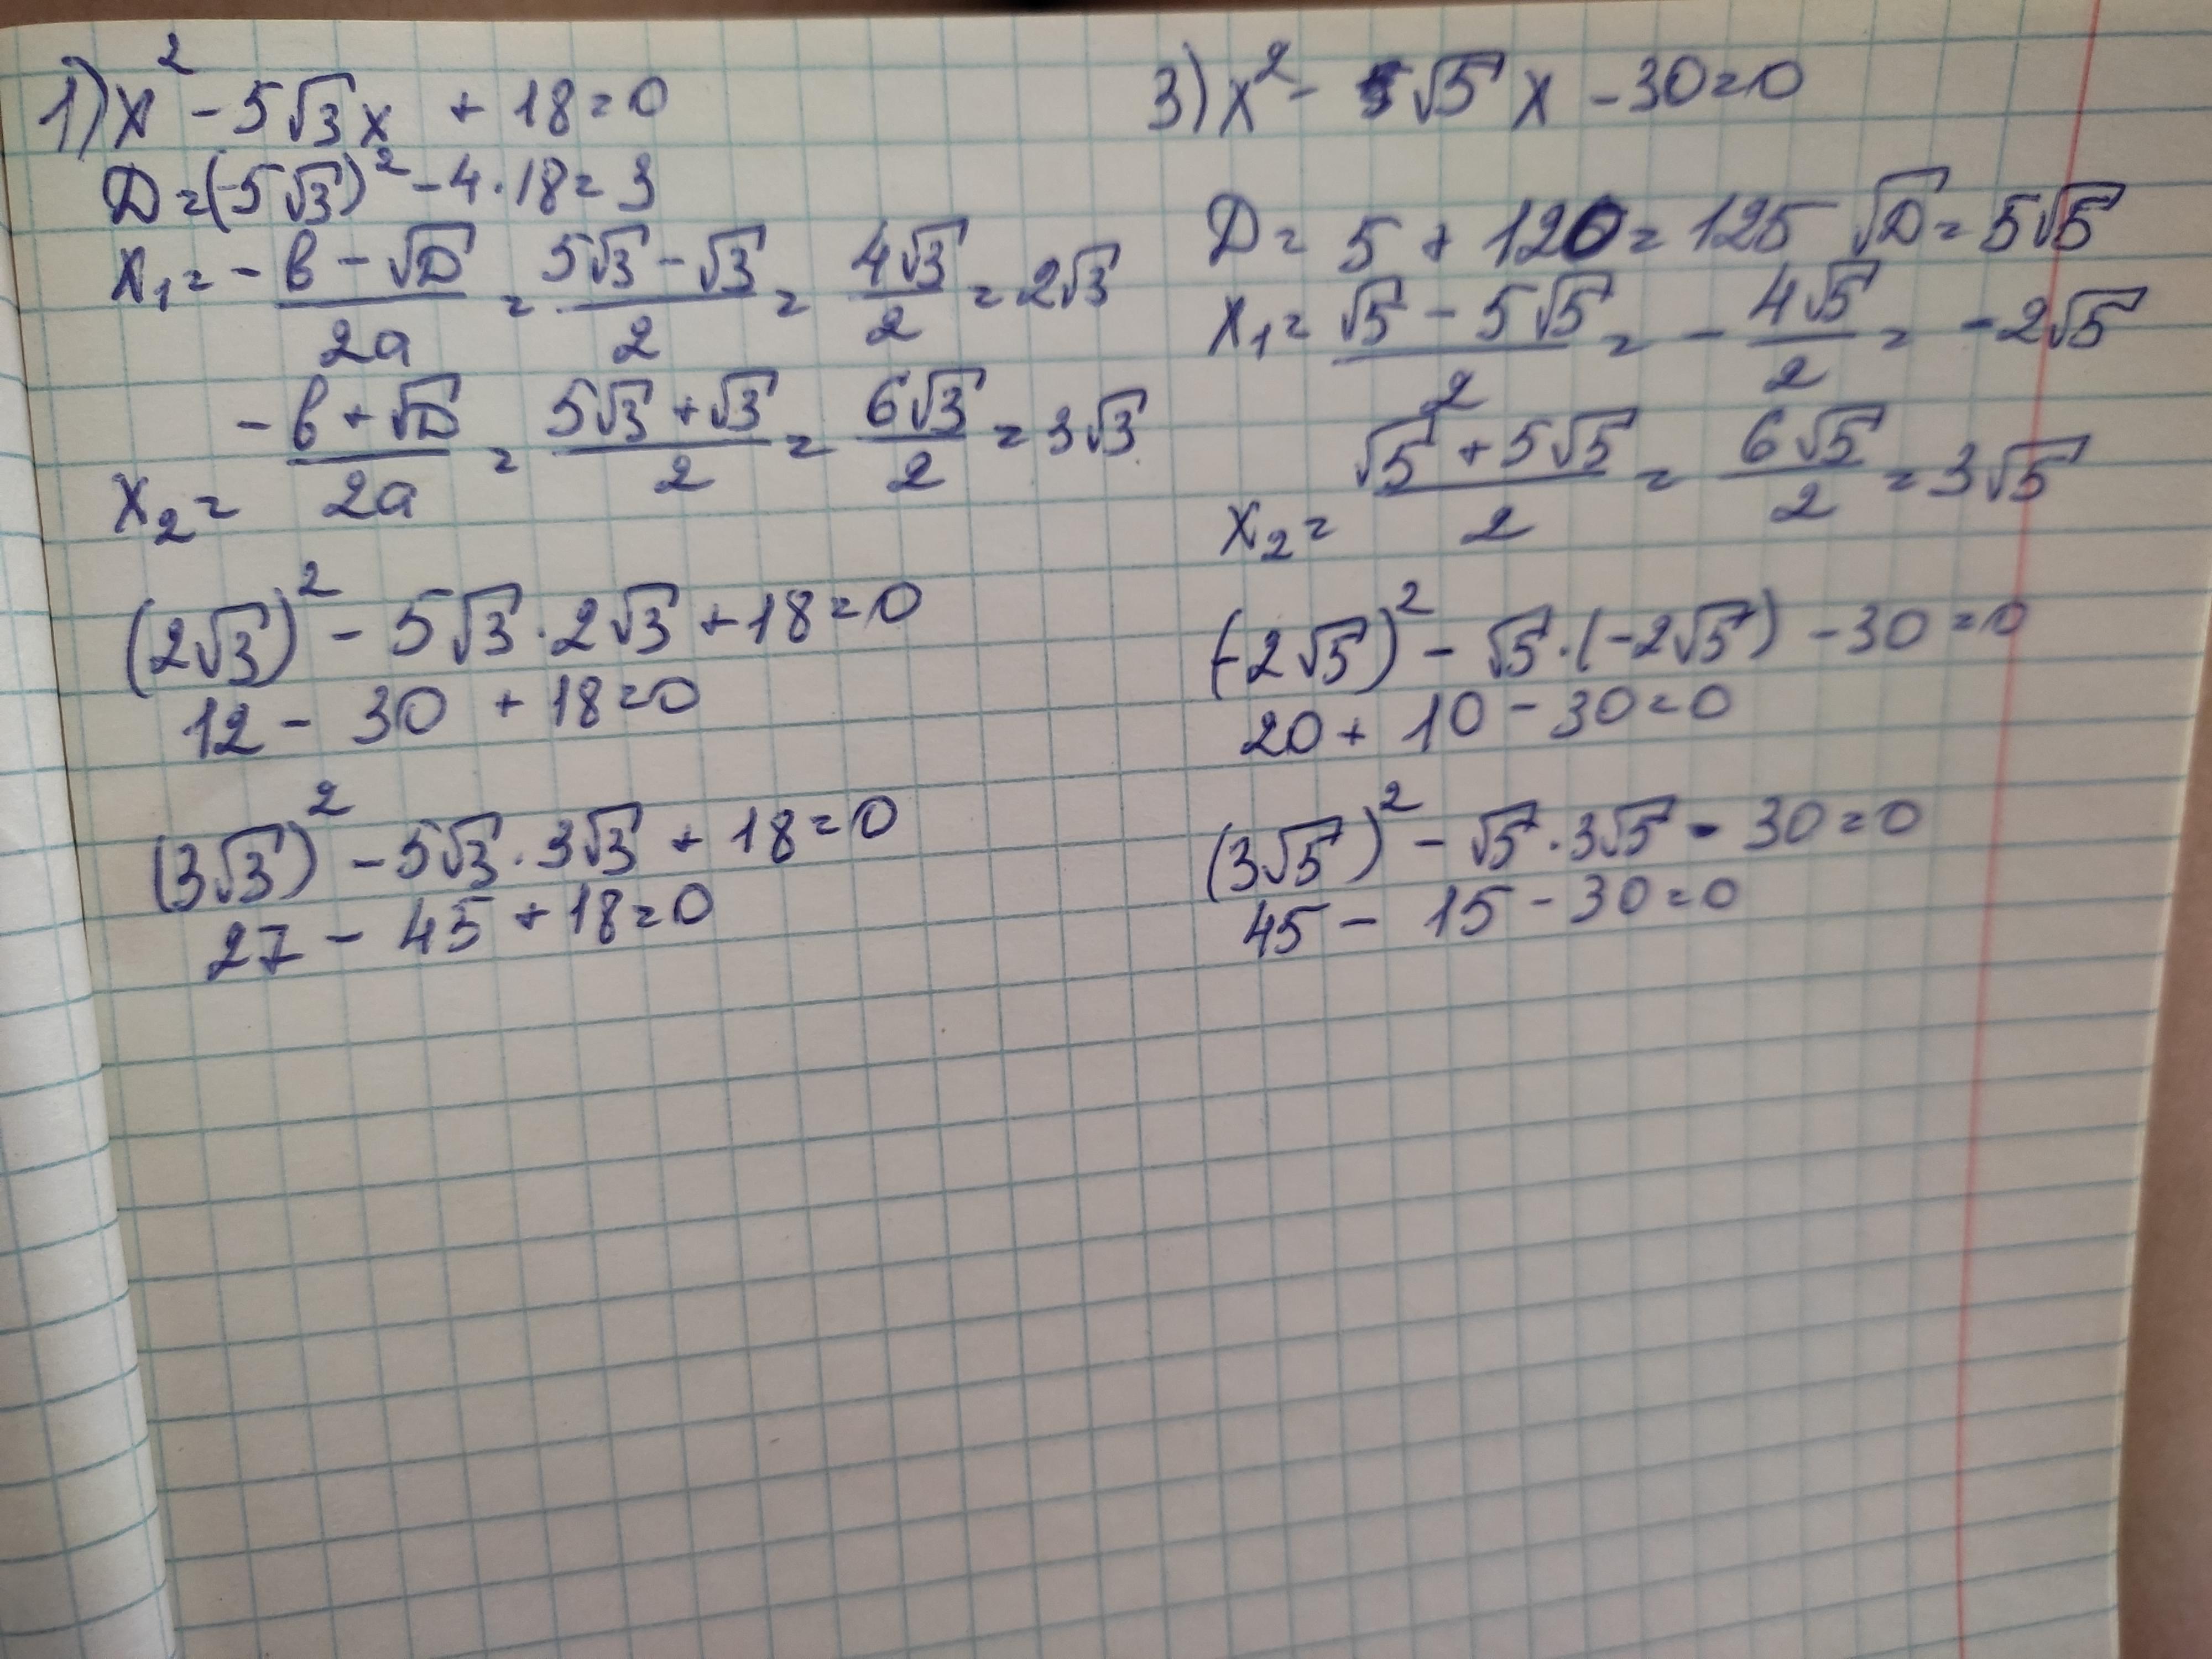 1) x² - 5√3 x + 18 = 0
D = (-5√3)² - 4 · 18 = 3
x₁ = -b - √D / 2a = 5√3 - √3 / 2 = 4√3 / 2 = 2√3
x₂ = -b + √D / 2a = 5√3 + √3 / 2 = 6√3 / 2 = 3√3
(2√3)² - 5√3 · 2√3 + 18 = 0
12 - 30 + 18 = 0
(3√3)² - 5√3 · 3√3 + 18 = 0
27 - 45 + 18 = 0
3) x² - √5 x - 30 = 0
D = 5 + 120 = 125 √D = 5√5
x₁ = √5 - 5√5 / 2 = - 4√5 / 2 = -2√5
x₂ = √5 + 5√5 / 2 = 6√5 / 2 = 3√5
(-2√5)² - √5 · (-2√5) - 30 = 0
20 + 10 - 30 = 0
(3√5)² - √5 · 3√5 - 30 = 0
45 - 15 - 30 = 0